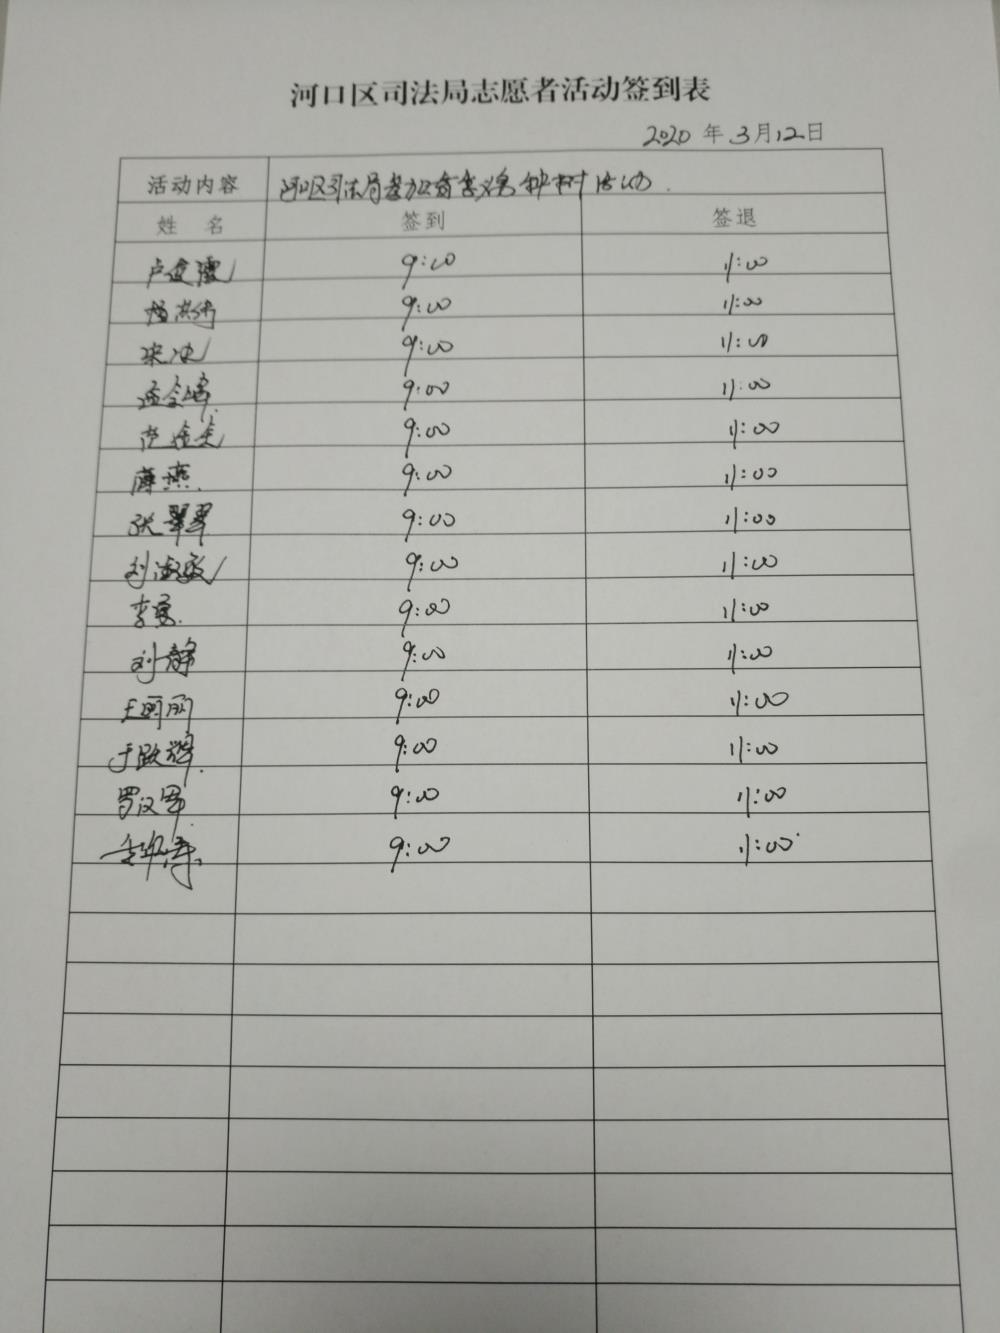 河口区司法局志愿者活动签到表
2020 年 3月12日
活动内容 河口区司法局参加义务种树活动.
姓 名 签到 签退
9:00 11:00
9:00 11:00
9:00 11:00
9:00 11:00
9:00 11:00
薛燕 9:00 11:00
张翠翠 9:00 11:00
刘淑敏 9:00 11:00
9:00 11:00
刘静 9:00 11:00
9:00 11:00
9:00 11:00
罗汉军 9:00 11:00
9:00 11:00